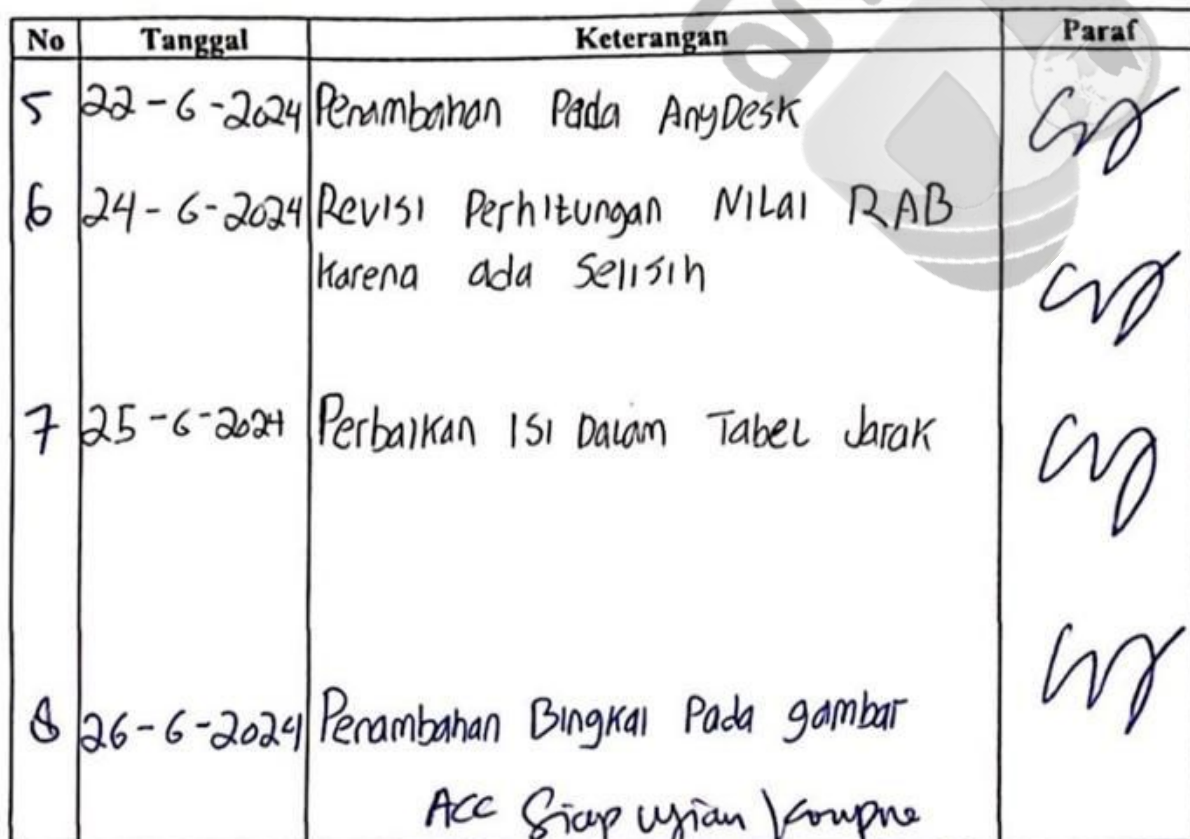 No Tanggal Keterangan Paraf
5 22-6-2024 Penambahan Pada AnyDesk
6 24-6-2024 Revisi Perhitungan Nilai RAB
Karena ada Selisih
7 25-6-2024 Perbaikan Isi Dalam Tabel Jarak
8 26-6-2024 Penambahan Bingkai Pada gambar
ACC Siap Ujian